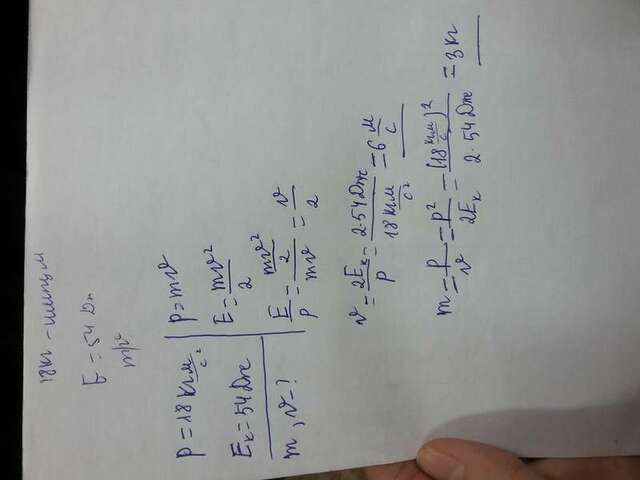 18кг - импульс
E = 54 Дж
m, v
p = 18 кг м/с²
Eк = 54 Дж
m, v - ?
p = mv
E = mv²/2
E/p = (mv²/2)/(mv) = v/2
v = 2Eк/p = 2·54 Дж/(18 кг м/с²) = 6 м/с
m = p/v = p²/2Eк = (18 кг м/с)²/(2·54 Дж) = 3 кг